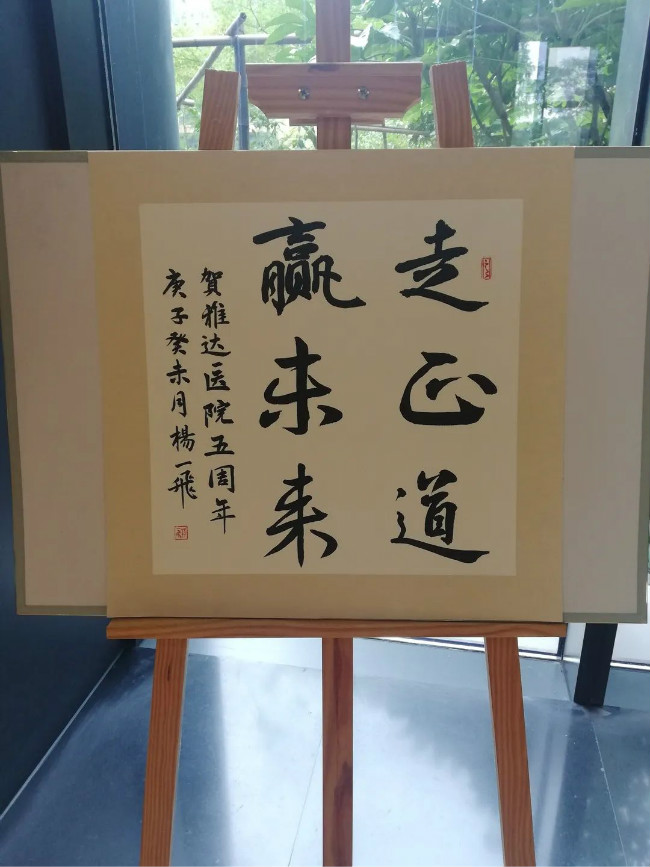 走正道
赢未来
賀雅达医院五周年
庚子癸未月楊一飛